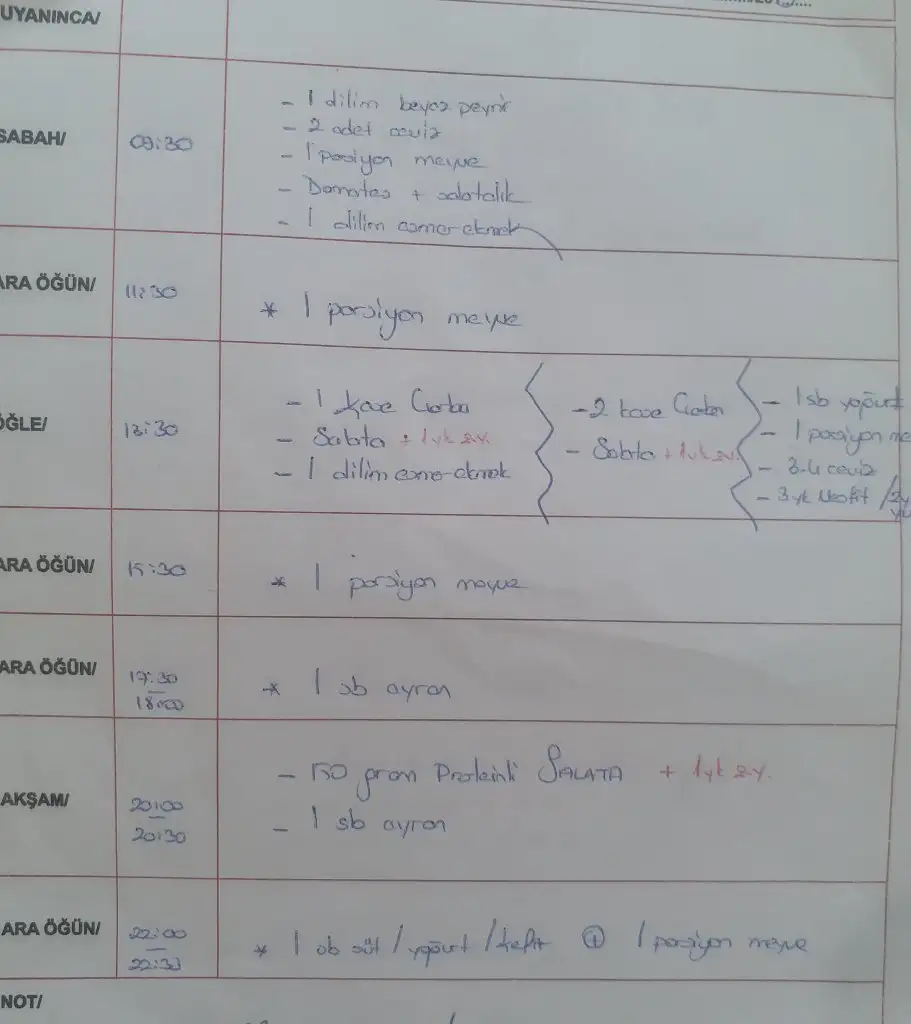 UYANINCA/
SABAH/
09:30
- 1 dilim beyaz peynir
- 2 adet ceviz
- 1 porsiyon meyve
- Domates + salatalık
- 1 dilim esmer ekmek
ARA ÖĞÜN/
11:30
* 1 porsiyon meyve
ÖĞLE/
13:30
- 1 kase Çorba
- Salata + 1 yk z.y.
- 1 dilim esmer ekmek
- 2 kase Çorba
- Salata + 1 yk z.y.
- 1 sb yoğurt
- 1 porsiyon me
- 3-4 ceviz
- 3 yk
ARA ÖĞÜN/
15:30
* 1 porsiyon meyve
ARA ÖĞÜN/
17:30
18:00
* 1 sb ayran
AKŞAM/
20:00
20:30
- 150 gram Proteinli SALATA + 1 yk z.y.
- 1 sb ayran
ARA ÖĞÜN/
22:00
22:30
* 1 sb süt / yoğurt / kefir + 1 porsiyon meyve
NOT/